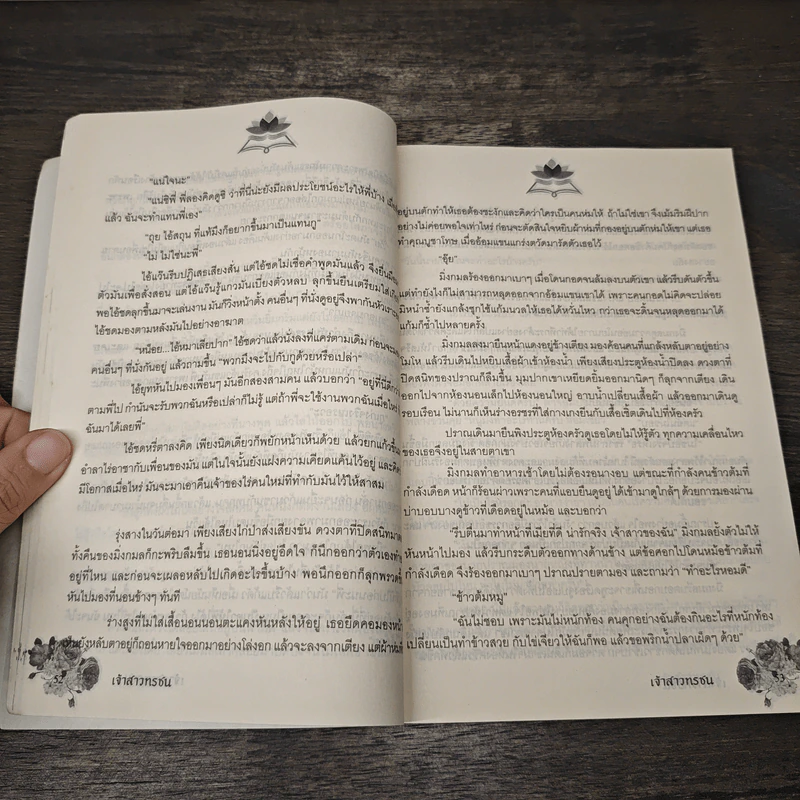 "แน่ใจนะ"
"แน่ซิพี่ พี่ลองคิดดูซิ ว่าที่นี่น่ะยังมีผลประโยชน์อะไรให้พี่บ้าง
แล้ว ฉันจะทำแทนพี่เอง"
"ถุย ไอ้สถุน ที่แท้มึงก็อยากขึ้นมาเป็นแทนกู"
"ไม่ ไม่ใช่นะพี่"
ไอ้แว่นรีบปฏิเสธเสียงสั่น แต่ไอ้ซดไม่เชื่อคำพูดมันแล้ว จึงยื่น
ตัวมันเพื่อสั่งสอน แต่ไอ้แว่นรู้แกวมันเบี่ยงตัวหลบ ลุกขึ้นยืนเตรียมใส่
พอไอ้ซดลุกขึ้นมาจะเล่นงาน มันก็วิ่งหน้าตั้ง คนอื่นๆ ที่นั่งดูอยู่จึงพากันหัวเราะ
ไอ้ซดมองตามหลังมันไปอย่างอาฆาต
"หนีอย...ไอ้หมาเสียปาก" ไอ้ซดว่าแล้วนั่งลงที่แคร่ตามเดิม ก่อนจะ
คนอื่นๆ ที่นั่งกันอยู่ แล้วถามขึ้น "พวกมึงจะไปกับกูด้วยหรือเปล่า"
ไอ้ยุทหันไปมองเพื่อนๆ มันอีกสองสามคน แล้วบอกว่า "อยู่ที่นี่ดีกว่า
ตามพี่ไป กำนันจะรับพวกฉันหรือเปล่าก็ไม่รู้ แต่ถ้าพี่จะใช้งานพวกฉันเมื่อไหร่
ฉันมาได้เลยพี่"
ไอ้ซดหรี่ตาลงคิด เพียงนิดเดียวก็พยักหน้าเห็นด้วย แล้วยกแก้วขึ้น
อำลาไร่อาชากับเพื่อนของมัน แต่ในใจนั้นยังแฝงความเคียดแค้นไว้อยู่ และคิด
มีโอกาสเมื่อไหร่ มันจะมาเอาคืนเจ้าของไร่คนใหม่ที่ทำกับมันไว้ให้สาสม
รุ่งสางในวันต่อมา เพียงเสียงไก่ป่าส่งเสียงขัน ดวงตาที่ปิดสนิทมา
ทั้งคืนของมิ่งกมลก็กะพริบลืมขึ้น เธอนอนนิ่งอยู่อึดใจ ก็นึกออกว่าตัวเอง
อยู่ที่ไหน และก่อนจะเผลอหลับไปเกิดอะไรขึ้นบ้าง พอนึกออกก็ลุกพรวด
หันไปมองที่นอนข้างๆ ทันที
ร่างสูงที่ไม่ใส่เสื้อนอนนอนตะแคงหันหลังให้อยู่ เธอยืดคอมอง
ยังหลับตาอยู่ก็ถอนหายใจออกมาอย่างโล่งอก แล้วจะลงจากเตียง แต่ผ้าห่ม
52
เจ้าสาวทรชน
อยู่บนตักทำให้เธอต้องชะงักและคิดว่าใครเป็นคนห่มให้ ถ้าไม่ใช่เขา จึงเม้มริมฝีปาก
อย่างไม่ค่อยพอใจเท่าไหร่ ก่อนจะตัดสินใจหยิบผ้าห่มที่กองอยู่บนตักห่มให้เขา แต่เธอ
ทำคุณบูชาโทษ เมื่ออ้อมแขนแกร่งตวัดมารัดตัวเธอไว้
"อุ๊ย"
มิ่งกมลร้องออกมาเบาๆ เมื่อโดนกอดจนล้มลงบนตัวเขา แล้วรีบดันตัวขึ้น
แต่ทำยังไงก็ไม่สามารถหลุดออกจากอ้อมแขนเขาได้ เพราะคนกอดไม่คิดจะปล่อย
มิหนำซ้ำยังแกล้งซุกไซ้แก้มนวลให้เธอได้หวั่นไหว กว่าเธอจะดิ้นจนหลุดออกมาได้
แก้มก็ช้ำไปหลายครั้ง
มิ่งกมลลงมายืนหน้าแดงอยู่ข้างเตียง มองค้อนคนที่แกล้งหลับตาอยู่อย่าง
โมโห แล้วรีบเดินไปหยิบเสื้อผ้าเข้าห้องน้ำ เพียงเสียงประตูห้องน้ำปิดลง ดวงตาที่
ปิดสนิทของปราณก็ลืมขึ้น มุมปากเขาเหยียดยิ้มออกมานิดๆ ก็ลุกจากเตียง เดิน
ออกไปจากห้องนอนเล็กไปห้องนอนใหญ่ อาบน้ำเปลี่ยนเสื้อผ้า แล้วออกมาเดินดู
รอบเรือน ไม่นานก็เห็นร่างอรชรที่ใส่กางเกงยีนกับเสื้อเชิ้ตเดินไปที่ห้องครัว
ปราณเดินมายืนพิงประตูห้องครัวดูเธอโดยไม่ให้รู้ตัว ทุกความเคลื่อนไหว
ของเธอจึงอยู่ในสายตาเขา
มิ่งกมลทำอาหารเช้าโดยไม่ต้องรอนางอบ แต่ขณะที่กำลังคนข้าวต้มที่
กำลังเดือด หน้าก็ร้อนผ่าวเพราะคนที่แอบยืนดูอยู่ ได้เข้ามาดูใกล้ๆ ด้วยการมองผ่าน
บ่าบอบบางดูข้าวที่เดือดอยู่ในหม้อ และบอกว่า
"รีบตื่นมาทำหน้าที่เมียที่ดี น่ารักจริง เจ้าสาวของฉัน" มิ่งกมลยั้งตัวไม่ให้
หันหน้าไปมอง แล้วรีบกระดืบตัวออกทางด้านข้าง แต่ข้อศอกไปโดนหม้อข้าวต้มที่
กำลังเดือด จึงร้องออกมาเบาๆ ปราณปรายตามอง และถามว่า "ทำอะไรหอมดี"
"ข้าวต้มหมู"
"ฉันไม่ชอบ เพราะมันไม่หนักท้อง คนคุกอย่างฉันต้องกินอะไรที่หนักท้อง
เปลี่ยนเป็นทำข้าวสวย กับไข่เจียวให้ฉันก็พอ แล้วขอพริกน้ำปลาเผ็ดๆ ด้วย"
เจ้าสาวทรชน
53